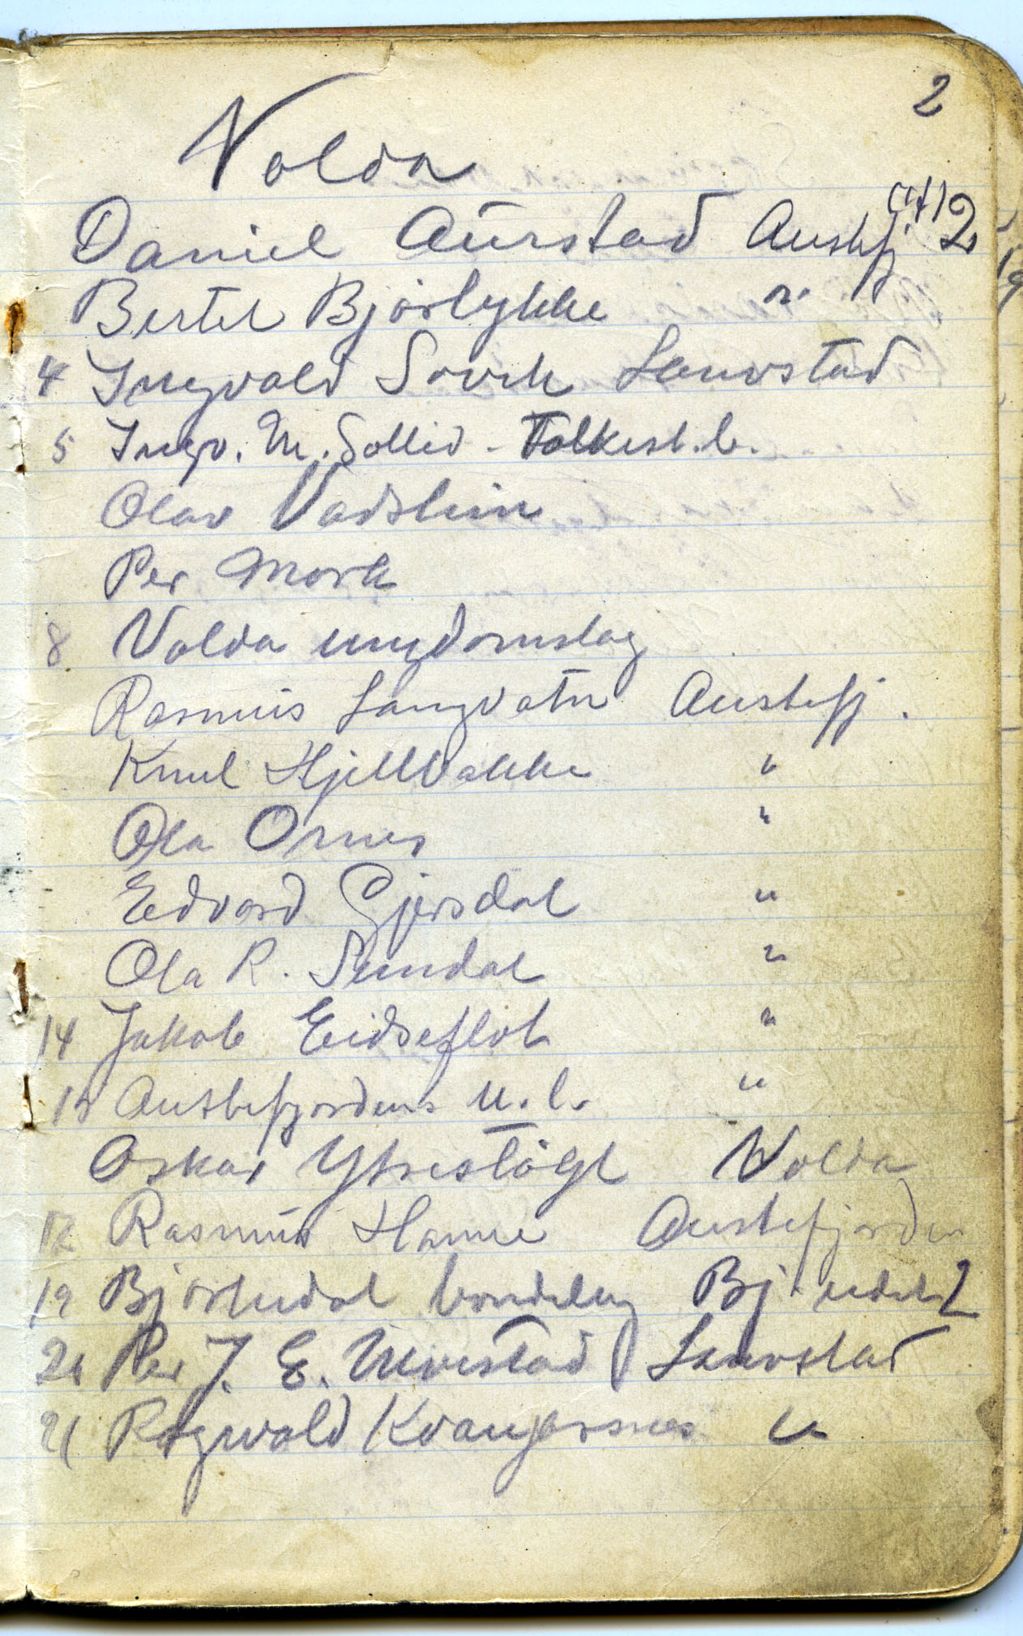 2
Volda
Daniel Aurstad Austefj 2
Bertel Bjørlykke "
4 Ingvald Sovik Lauvstad
5 Ingv. M. Sollid - Folkest.l.
Olav Vadstein
Per Mork
8 Volda ungdomslag
Rasmus Langvatn Austefj.
Knut Hjellbakke "
Ola Ornes "
Edvard Gjersdal "
Ola R. Sundal "
14 Jakob Eidseflot "
Austefjordens u.l. "
Oskar Ytrestøyl Volda
Rasmus Hamre Austefjorden
19 Bjørkedal bondelag 2
Per J. E. Lauvstad
21 Ragnvald Kvangarsnes "